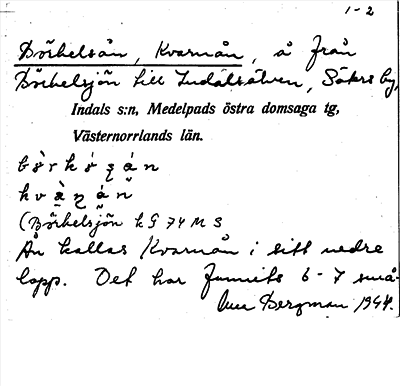 1-2
Börhelsån, Kvarnån, å från
Börhelsjön till Indalsälven, Säters by,
Indals s:n, Medelpads östra domsaga tg,
Västernorrlands län.
(Börhelsjön k G 74 M S
Ån kallas Kvarnån i sitt nedre
lopp. Det har funnits 6-7 små-
Bergman 1944.